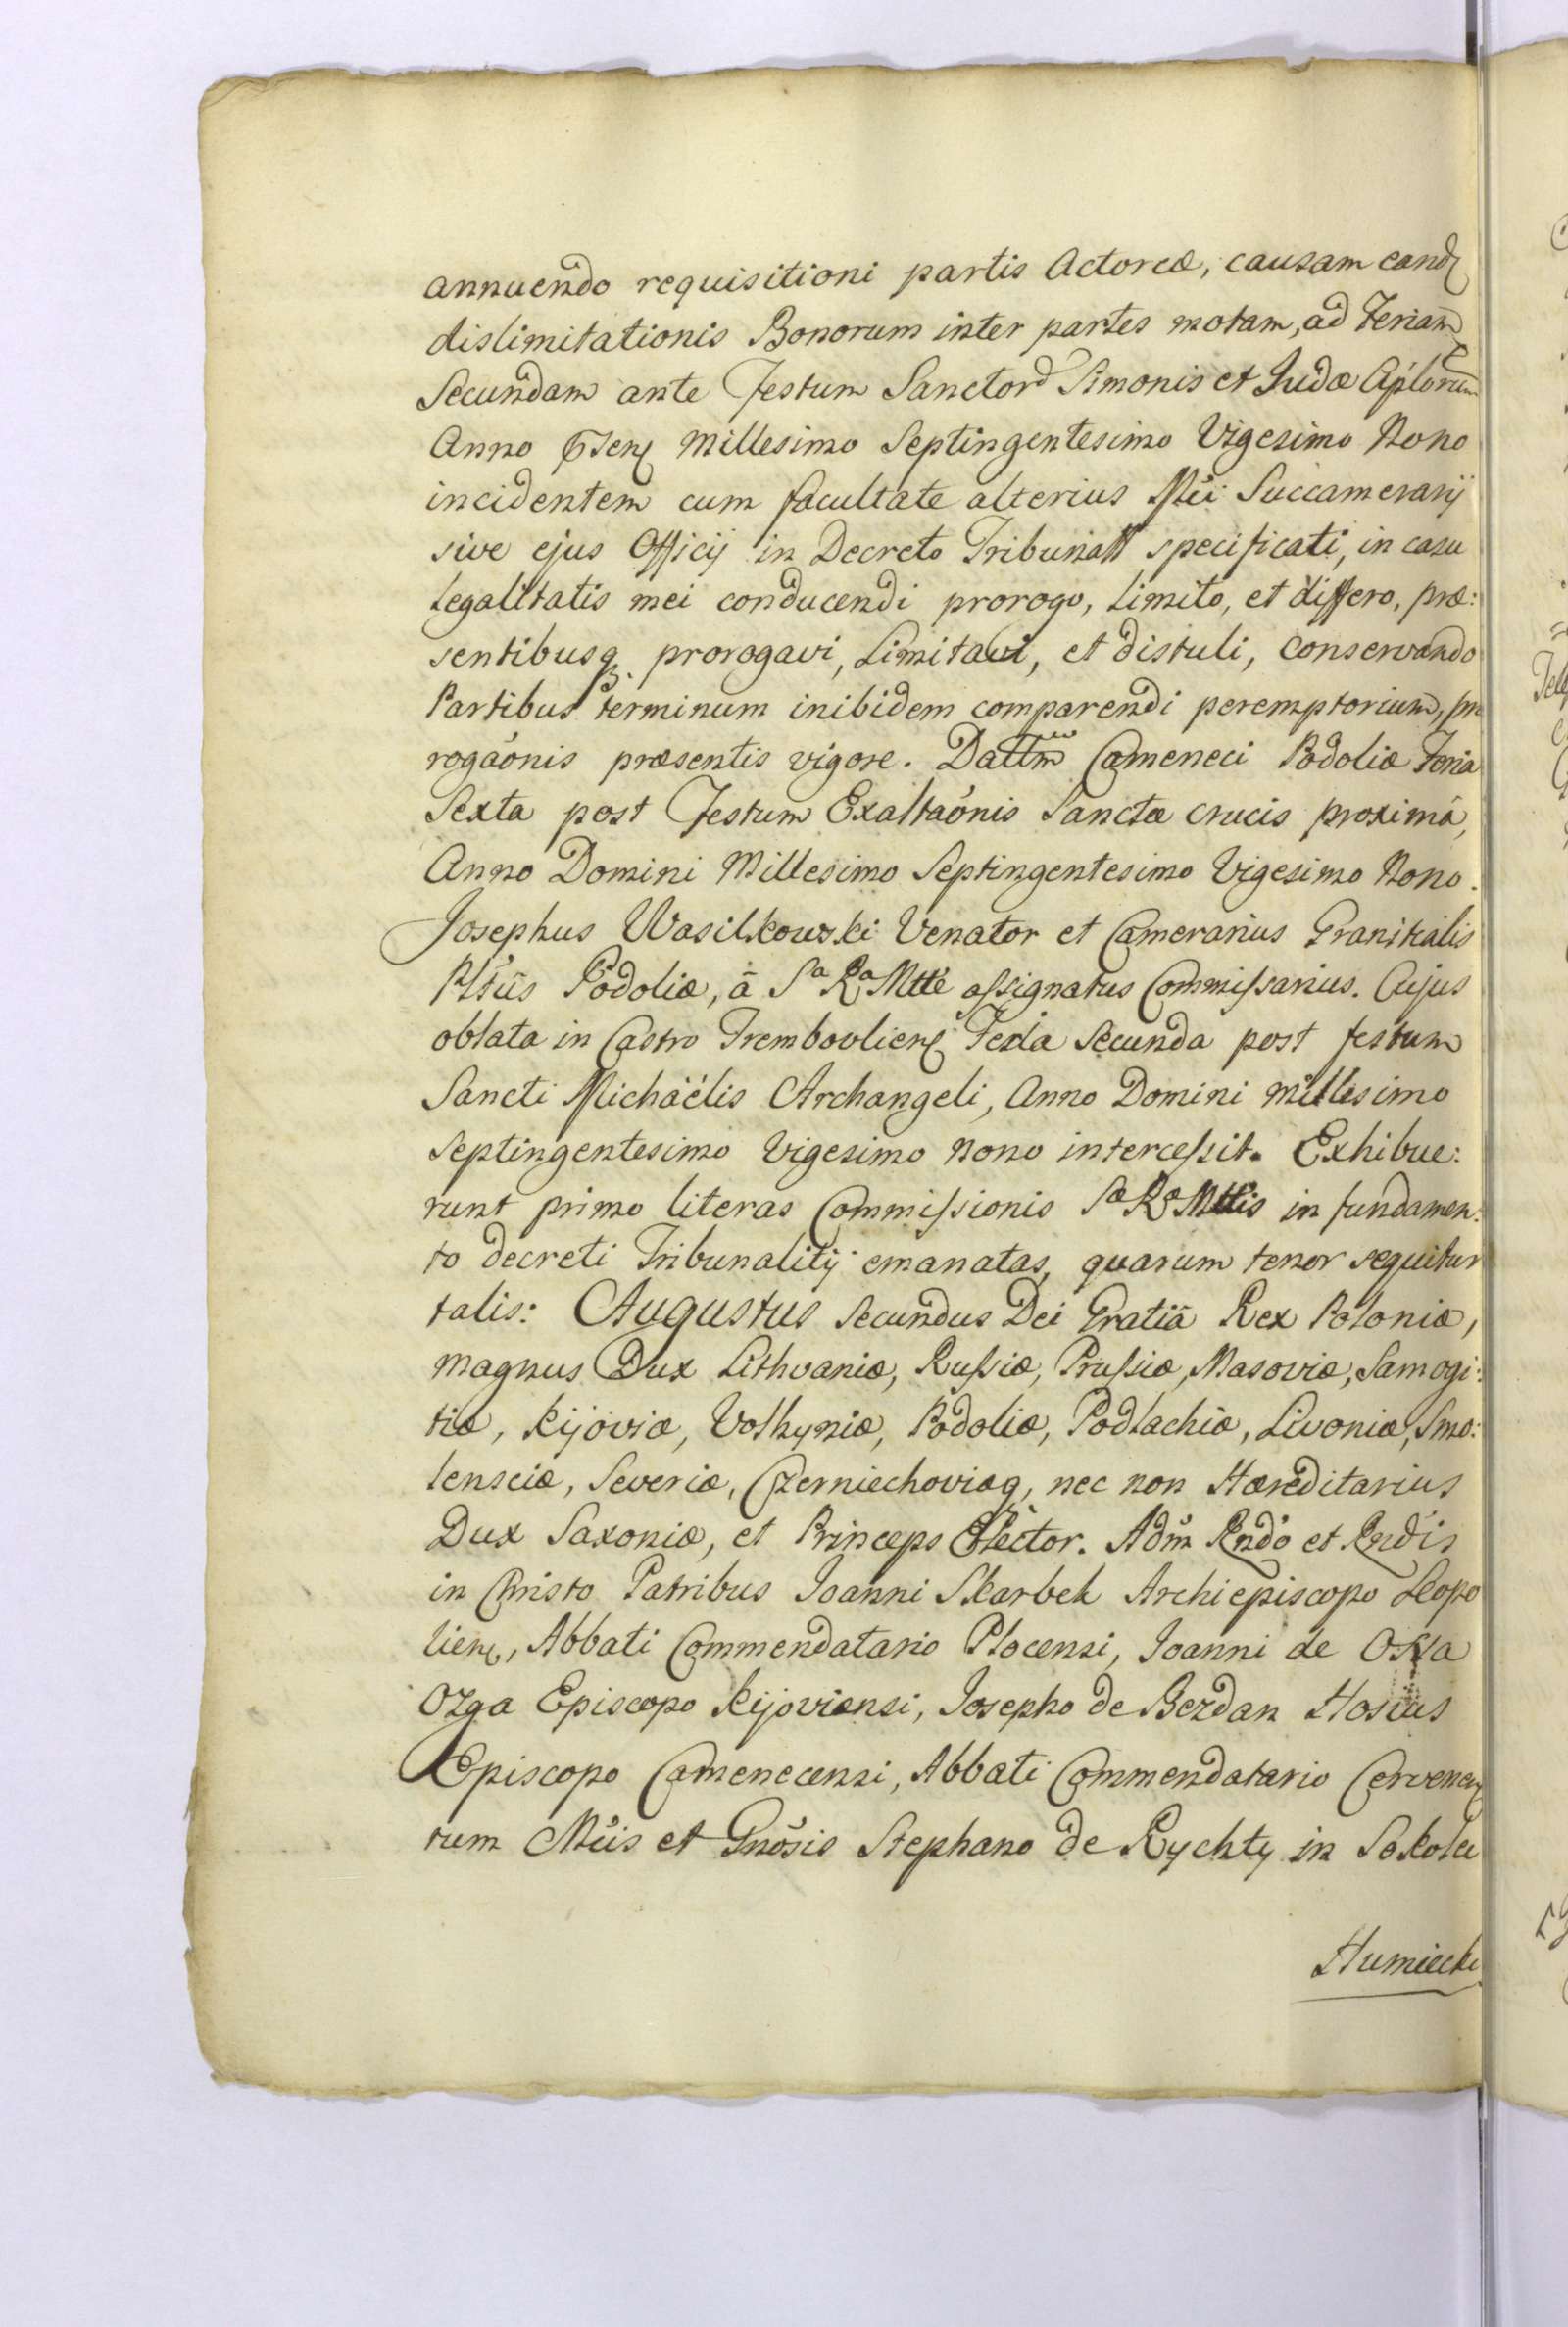 annuendo requisitioni partis Actoreæ, causam eand
dislimitationis Bonorum inter partes motam, ad Feriam
Secundam ante Festum Sanctor Simonis et Judæ Aplorum
Anno Millesimo Septingentesimo Vigesimo Nono
incidentem cum facultate alterius Mči Succamerarij
sive ejus Officij in Decreto Tribunall specificati, in casu
legalitatis mei conducendi prorogo, limito, et differo, præ:
sentibusq prorogavi, Limitavi, et distuli, conservando
Partibus terminum inibidem comparendi peremptorium, pro
rogaónis præsentis vigore. Dattm Cameneci Podoliæ Feria
Sexta post Festum Exaltaónis Sanctæ Crucis proximâ,
Anno Domini Millesimo Septingentesimo Vigesimo Nono.
Josephus Wasilkowski Venator et Camerarius Granitialis
Pltus Podoliæ, â Sª Rª Mtte assignatus Commissarius. Cujus
oblata in Castro Trembovliens Feria Secunda post festum
Sancti Michaëlis Archangeli, Anno Domini millesimo
Septingentesimo Vigesimo nono intercessit. Exhibue:
runt primo literas Commissionis Sæ Ræ Mttis in fundamen:
to decreti Tribunalitij emanatas, quarum tenor sequitur
talis: Augustus Secundus Dei Gratiâ Rex Poloniæ,
magnus Dux Lithvaniæ, Russiæ, Prussiæ, Masoviæ, Samogi:
tiæ, Kijoviæ, Volhyniæ, Podoliæ, Podlachiæ, Livoniæ, Smo:
lensciæ, Severiæ, Czerniechoviæq, nec non Hæreditarius
Dux Saxoniæ, et Princeps Elector. Adm Rndo et Rndis
in Christo Patribus Joanni Skarbek Archiepiscopo Leopo
liens, Abbati Commendatario Plocensi, Joanni de Ossa
Ozga Episcopo Kijoviensi, Josepho de Bezdan Hosius
Episcopo Camenecensi, Abbati Commendatario Cervenens
tum Mčis et Gnosis Stephano de Rychty in Sokolec
Humiecki